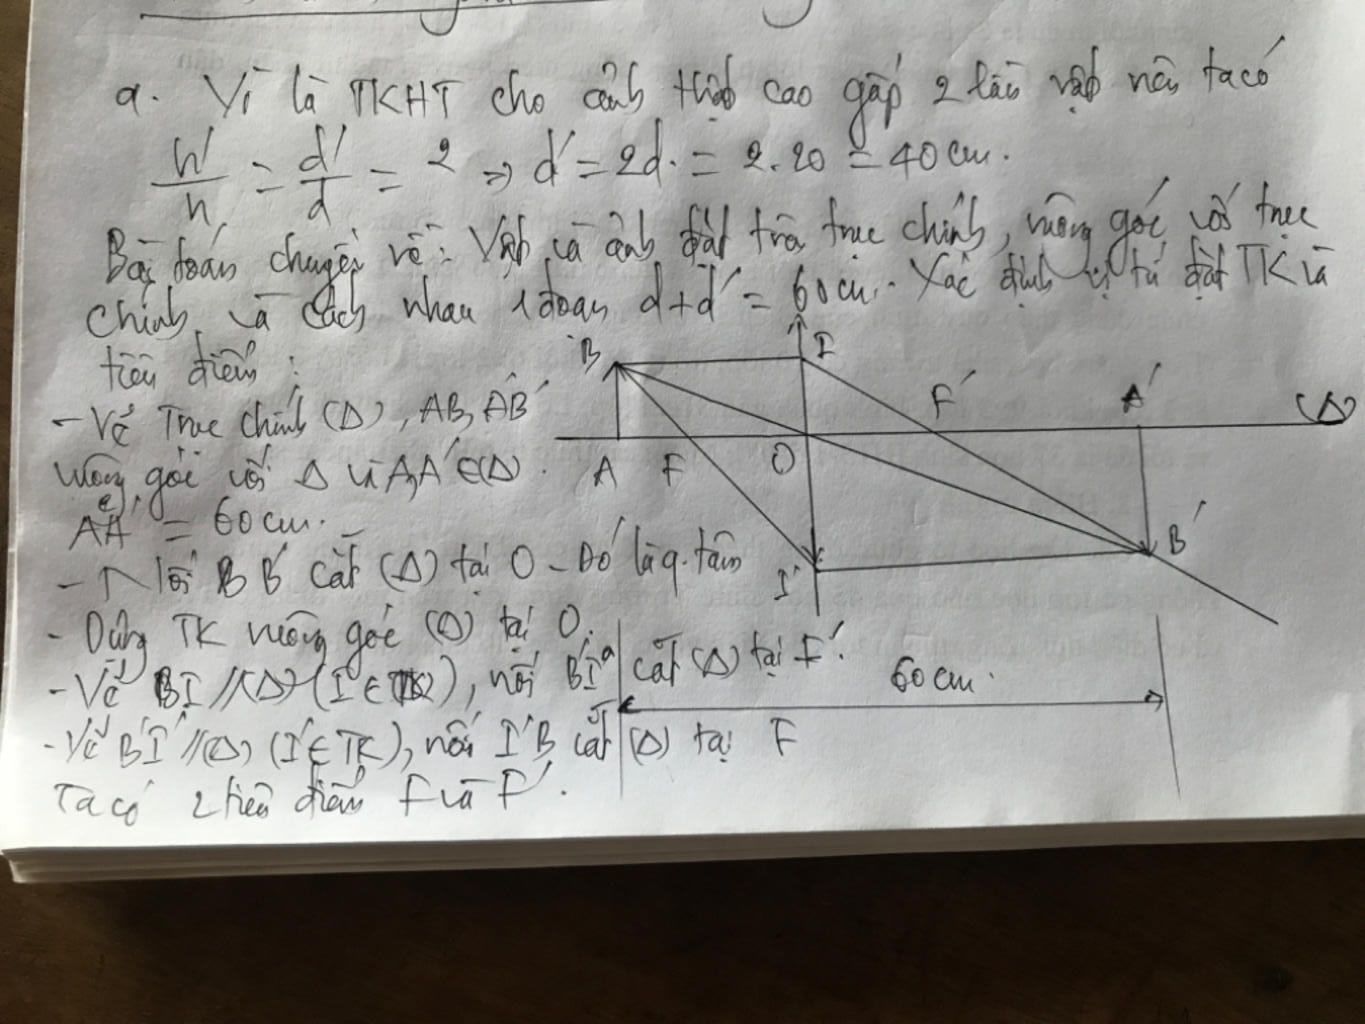 a. Vì là TKHT cho ảnh thật cao gấp 2 lần vật nên ta có
h'/h = d'/d = 2 => d' = 2d. = 2.20 = 40 cm.
Bài toán chuyển về: Vật và ảnh đặt trên trục chính, vuông góc với trục
chính và cách nhau 1 đoạn d+d' = 60 cm. Xác định vị trí đặt TK và
tiêu điểm:
- Vẽ Trục chính (Δ), AB, A'B'
vuông góc với Δ và A, A' ∈ (Δ).
AA' = 60 cm.
- Nối BB' cắt (Δ) tại O - Đó là q. tâm
- Dựng TK vuông góc (Δ) tại O.
- Vẽ BI // (Δ) (I ∈ TK), nối B'I cắt (Δ) tại F'.
- Vẽ B'I' // (Δ) (I' ∈ TK), nối I'B cắt (Δ) tại F
Ta có 2 tiêu điểm F và F'.
B I
F' A' (Δ)
A F O
B'
I'
60 cm.